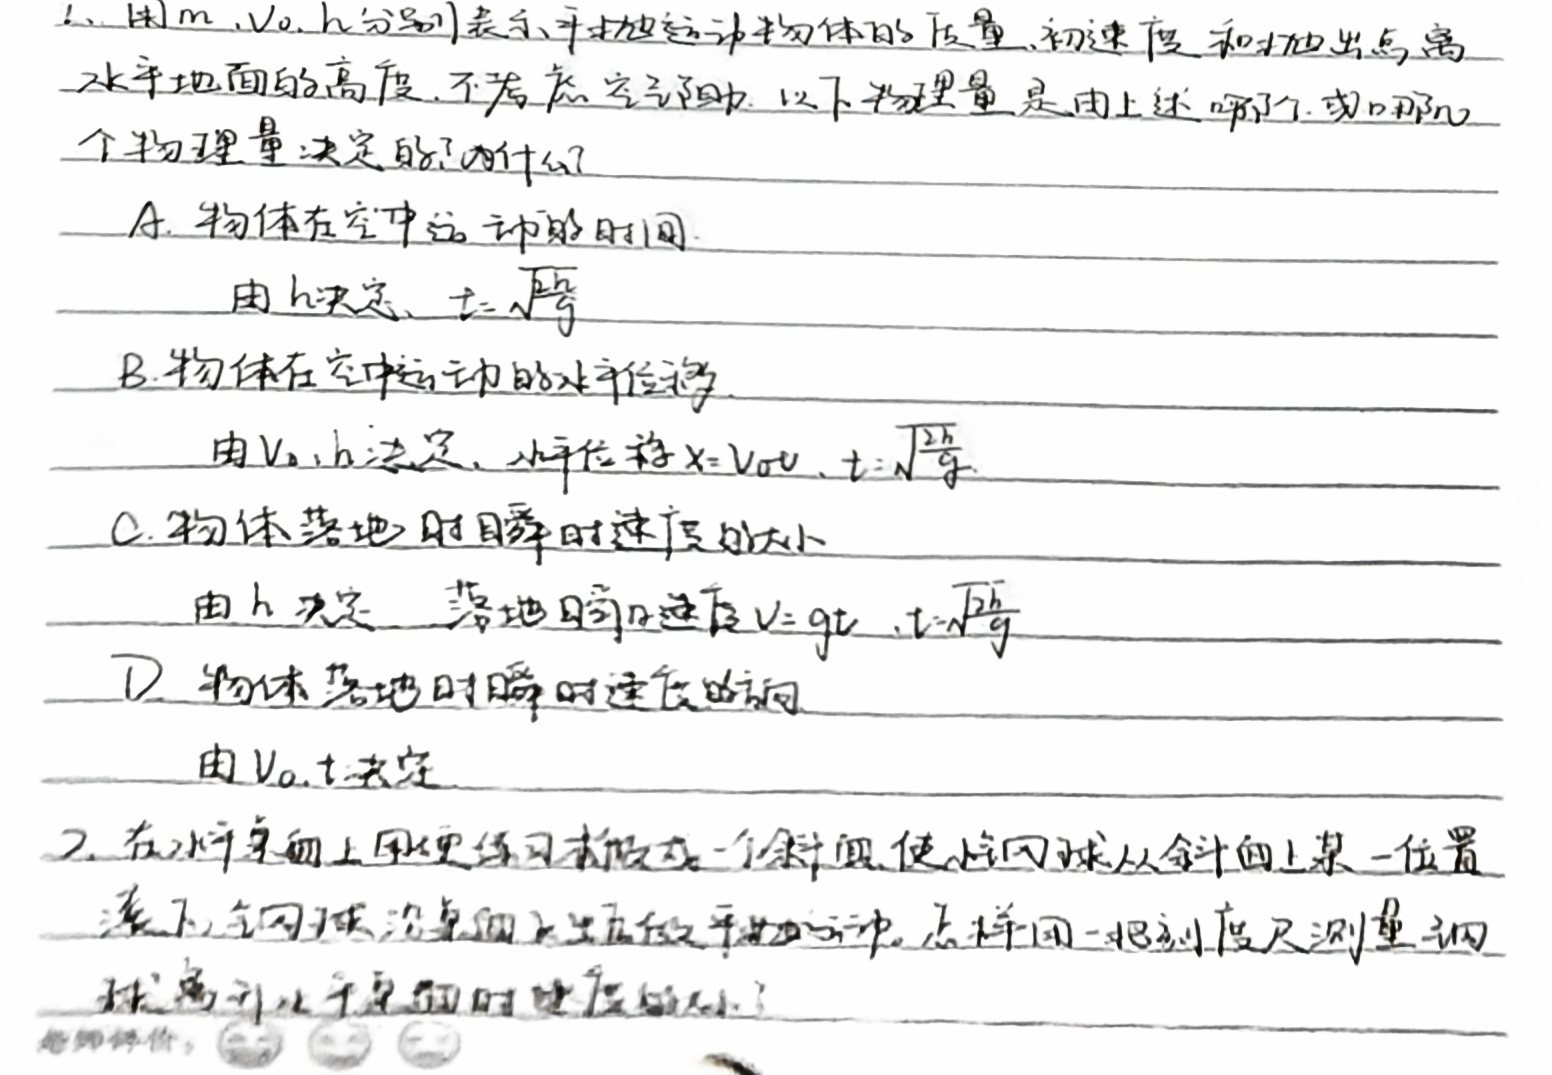 1、用m、V₀、h分别表示平抛运动物体的质量、初速度和抛出点离
水平地面的高度、不考虑空气阻力.以下物理量是由上述哪个.或哪几
个物理量决定的?为什么?
A. 物体在空中运动的时间.
由h决定、t=√(2h/g)
B.物体在空中运动的水平位移.
由V₀、h决定、水平位移x=V₀t、t=√(2h/g).
C.物体落地时瞬时速度的大小
由h决定 落地瞬时速度V=gt、t=√(2h/g)
D 物体落地时瞬时速度的方向.
由V₀.t决定
2、在水平桌面上用硬练习本做成一个斜面、使小钢球从斜面上某一位置
滚下、钢球沿桌面飞出后做平抛运动。怎样用一把刻度尺测量钢
球离开水平桌面时速度的大小?
老师评价: